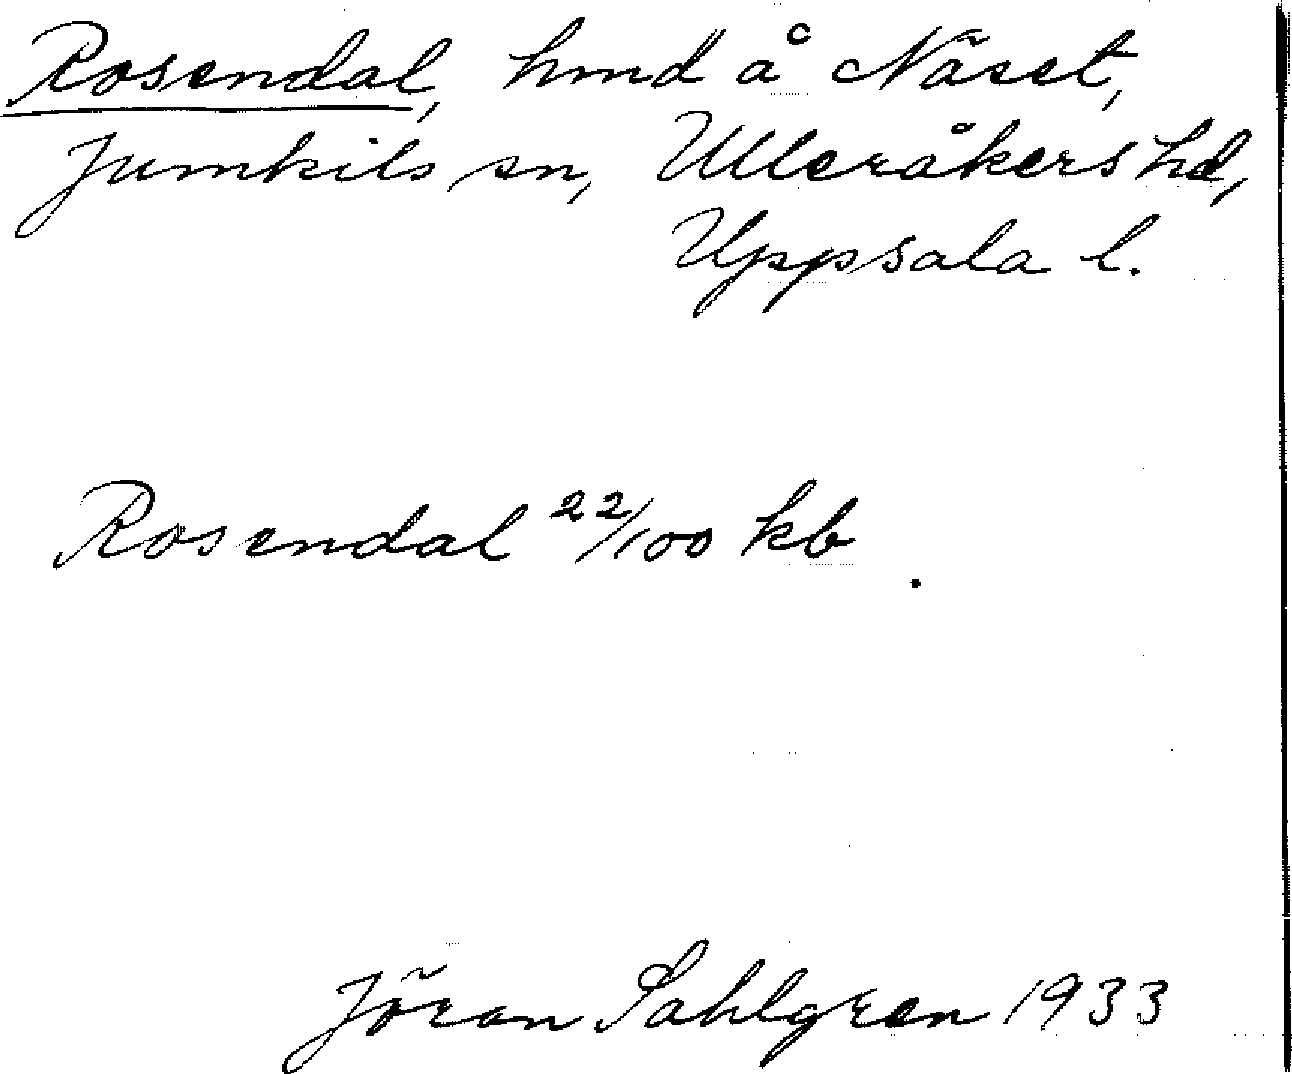 Rosendal, hmd å Näset,
Jumkils sn, Ulleråkers hd,
Uppsala l.
Rosendal 22/100 kb
Jöran Sahlgren 1933